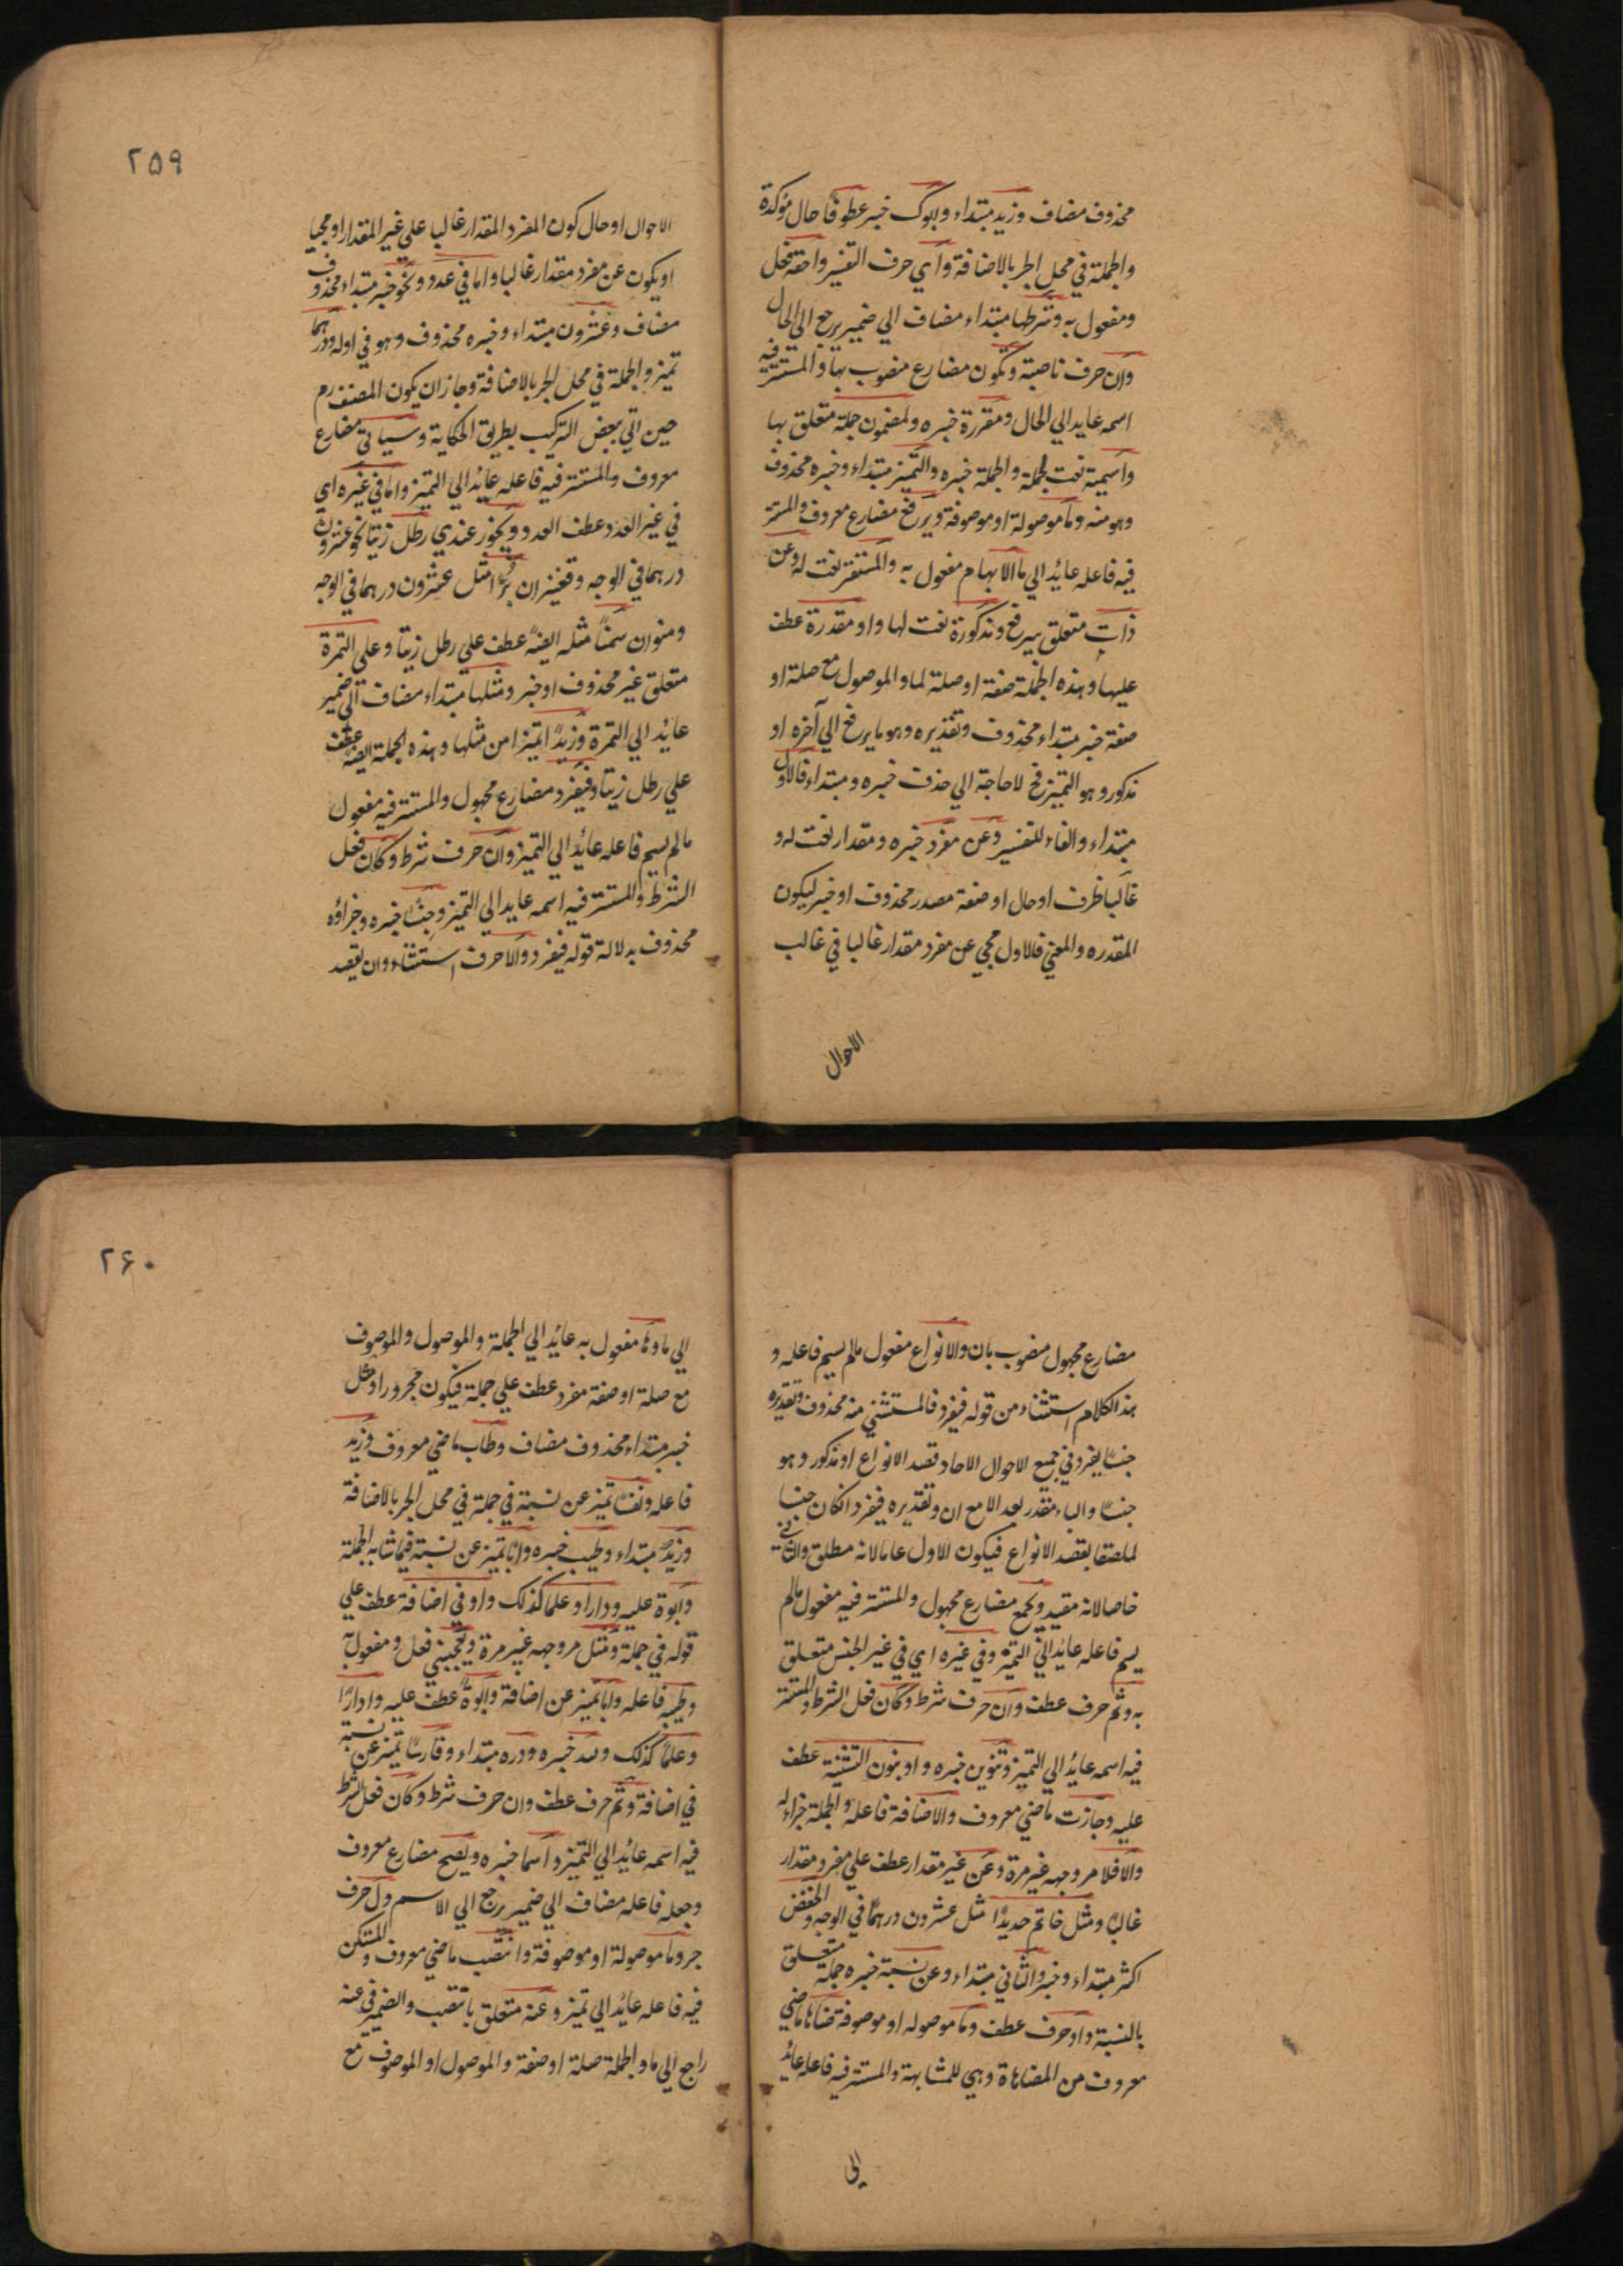 محذوف مضاف وزيد مبتداء وابوك خبر عطوفًا حال مؤكدة
والجملة في محل الجر بالاضافة واي حرف التفسير واحقه فعل
ومفعول به وشرطها مبتداء مضاف الي ضمير يرجع الي الحال
وان حرف ناصبة وتكون مضارع منصوب بها والمستتر فيه
اسمه عايد الي الحال ومقررة خبره ولمضمون جملة متعلق بها
واسمية نعت لجملة والجملة خبره والتميز مبتداء وخبره محذوف
وهو منه وما موصولة او موصوفة ويرفع مضارع معروف والمستتر
فيه فاعله عائد الي ما الابهام مفعول به والمستقر نعت له وعن
ذات متعلق بيرفع ومذكورة نعت لها واو مقدرة عطف
عليها وهذه الجملة صفة او صلة لما والموصول مع صلة او
صفة خبر مبتداء محذوف وتقديره وهو ما يرفع الي آخره او
مذكور وهو التميز فح لا حاجة الي حذف خبره ومبتداء فالاول
مبتداء والفاء للتفسير وعن مفرد خبره ومقدار نعت له و
غالبا ظرف او حال او صفة مصدر محذوف او خبر ليكون
المقدره والمعني فالاول مجي عن مفرد مقدار غالبا في غالب
الاحوال
٢٥٩
الاحوال او حال كون المفرد المقدار غالبا علي غير المقدار او مجيا
او يكون عن مفرد مقدار غالبا واما في عدد ونحو خبر مبتداء محذوف
مضاف وعشرون مبتداء وخبره محذوف وهو في اوله ودرهما
تميز والجملة في محل الجر بالاضافة وجاز ان يكون المصنف رح
حين اتي بعض التركيب بطريق الحكاية وسياتي مضارع
معروف والمستتر فيه فاعله عائد الي التميز واما في غيره اي
في غير العدد عطف العدد ويجوز عندي رطل زيتا نحو عشرون
درهما في الوجه وقفيزان برًّا مثل عشرون درهما في الوجه
ومنوان سمنًا مثله ايضًا عطف علي رطل زيتا وعلي التمرة
متعلق غير محذوف او خبر ومثلها مبتداء مضاف الي ضمير
عائد الي التمرة وزبدًا تميزا من مثلها وهذه الجملة ايضًا عطف
علي رطل زيتا وفيفرد مضارع مجهول والمستتر فيه مفعول
مالم يسم فاعله عائد الي التميز وان حرف شرط وكان فعل
الشرط والمستتر فيه اسمه عايد الي التميز وجنسًا خبره وجزاؤه
محذوف بدلالة قوله فيفرد والا حرف استثناء وان يقصد
مضارع مجهول منصوب بان والانواع مفعول مالم يسم فاعله و
هذا الكلام استثناء من قوله فيفرد فالمستثني منه محذوف وتقديره
جنسًا يفرد في جميع الاحوال الاحاد قصد الانواع او مذكور وهو
جنسًا والباء مقدر بعد الا مع ان وتقديره فيفرد انكان جنسا
لملصقا بقصد الانواع فيكون الاول عاما لانه مطلق والثاني
خاصا لانه مقيد ويجمع مضارع مجهول والمستتر فيه مفعول مالم
يسم فاعله عائد الي التميز وفي غيره اي في غير الجنس متعلق
به وثم حرف عطف وان حرف شرط وكان فعل الشرط والمستتر
فيه اسمه عائد الي التميز وبتنوين خبره واو بنون التثنية عطف
عليه وجازت ماضي معروف والاضافة فاعله والجملة جزاء له
والا فلا مر وجهه غير مرة وعن غير مقدار عطف علي مفرد مقدار
غالبًا ومثل خاتم حديدًا مثل عشرون درهمًا في الوجه والخفض
اكثر مبتداء وخبر والثاني مبتداء وعن نسبة خبره جملة متعلق
بالنسبة واو حرف عطف وما موصوله او موصوفة ضاهاها ماضي
معروف من المضاهاة وهي للمشابهة والمستتر فيه فاعله عائد
الي
٢٦٠
الي ما وها مفعول به عائد الي الجملة والموصول والموصوف
مع صلة او صفة مفرد عطف علي جملة فيكون مجرورا ومثل
خبر مبتداء محذوف مضاف وطاب ماضي معروف وزيد
فاعله ونفسًا تميز عن نسبة في جملة في محل الجر بالاضافة
وزيدٌ مبتداء وطيب خبره وابا تميز عن نسبة فيما شابه الجملة
وابوة عليه ودارا وعلما كذلك واو في اضافة عطف علي
قوله في جملة ومثل مر وجهه غير مرة ويعجبني فعل ومفعول به
وطيبه فاعله وابا تميز عن اضافة وابوةً عطف عليه وادارًا
وعلمًا كذلك ولله خبره ودره مبتداء وفارسًا تميز عن نسبة
في اضافة وثم حرف عطف وان حرف شرط وكان فعل الشرط
فيه اسمه عائد الي التميز واسما خبره ويصح مضارع معروف
وجعله فاعله مضاف الي ضمير يرجع الي الاسم ول حرف
جر وما موصولة او موصوفة وانتصب ماضي معروف والمستكن
فيه فاعله عائد الي تميز وعنه متعلق بانتصب والضمير في عنه
راجع الي ما والجملة صلة او صفة والموصول او الموصوف مع